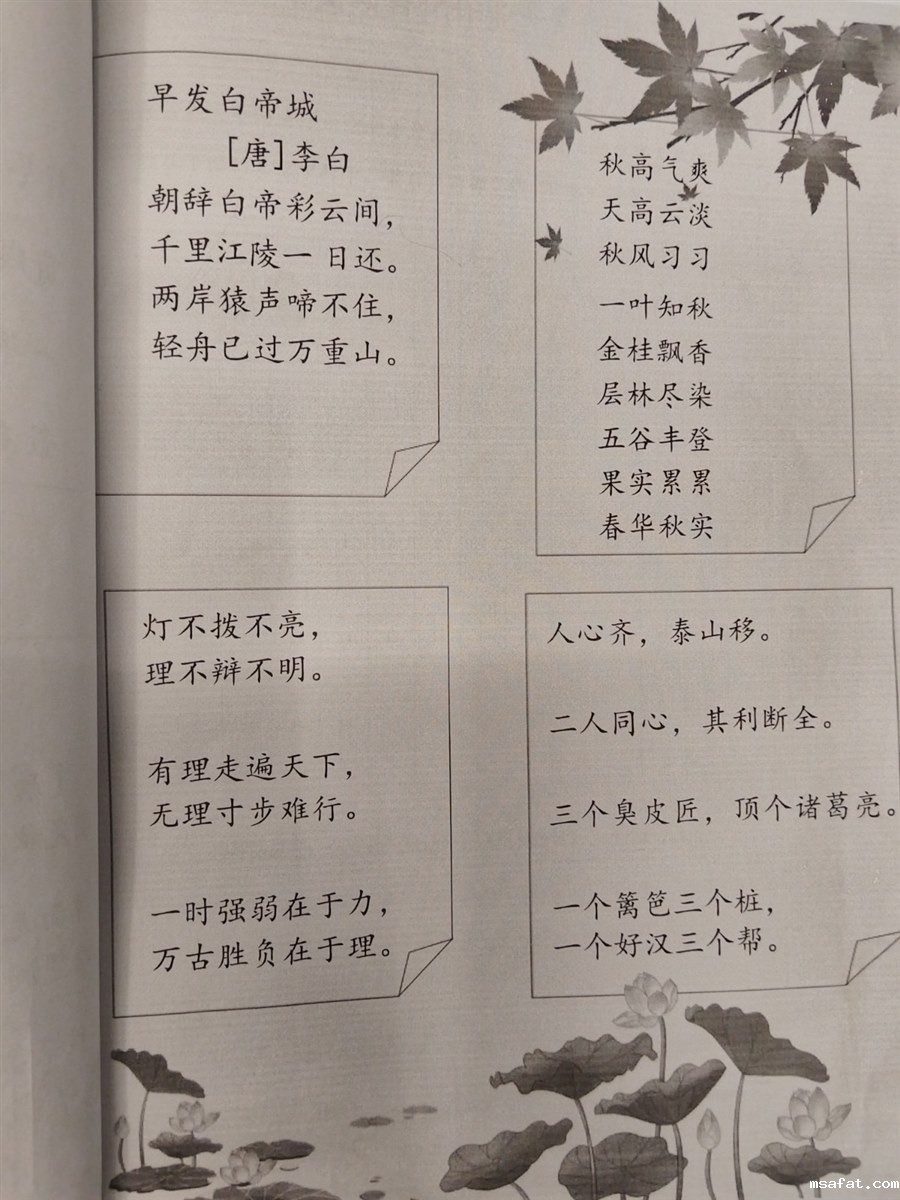 早发白帝城
[唐]李白
朝辞白帝彩云间，
千里江陵一日还。
两岸猿声啼不住，
轻舟已过万重山。
秋高气爽
天高云淡
秋风习习
一叶知秋
金桂飘香
层林尽染
五谷丰登
果实累累
春华秋实
灯不拨不亮，
理不辩不明。
有理走遍天下，
无理寸步难行。
一时强弱在于力，
万古胜负在于理。
人心齐，泰山移。
二人同心，其利断金。
三个臭皮匠，顶个诸葛亮。
一个篱笆三个桩，
一个好汉三个帮。
msafat.com